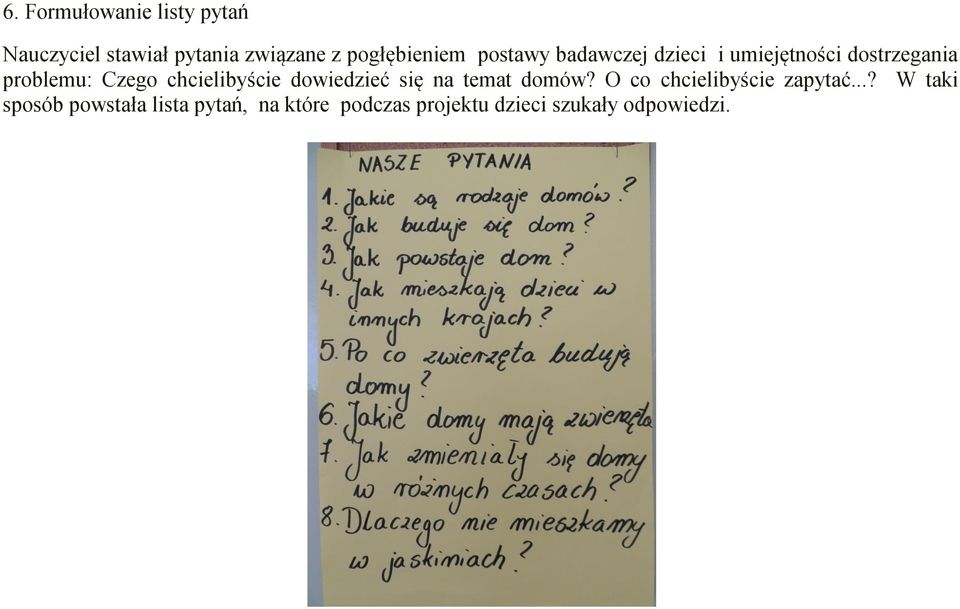 6. Formułowanie listy pytań
Nauczyciel stawiał pytania związane z pogłębieniem postawy badawczej dzieci i umiejętności dostrzegania
problemu: Czego chcielibyście dowiedzieć się na temat domów? O co chcielibyście zapytać...? W taki
sposób powstała lista pytań, na które podczas projektu dzieci szukały odpowiedzi.
NASZE PYTANIA
1. Jakie są rodzaje domów?
2. Jak buduje się dom?
3. Jak powstaje dom?
4. Jak mieszkają dzieci w
innych krajach?
5. Po co zwierzęta budują
domy?
6. Jakie domy mają zwierzęta
7. Jak zmieniały się domy
w różnych czasach?
8. Dlaczego nie mieszkamy
w jaskiniach?